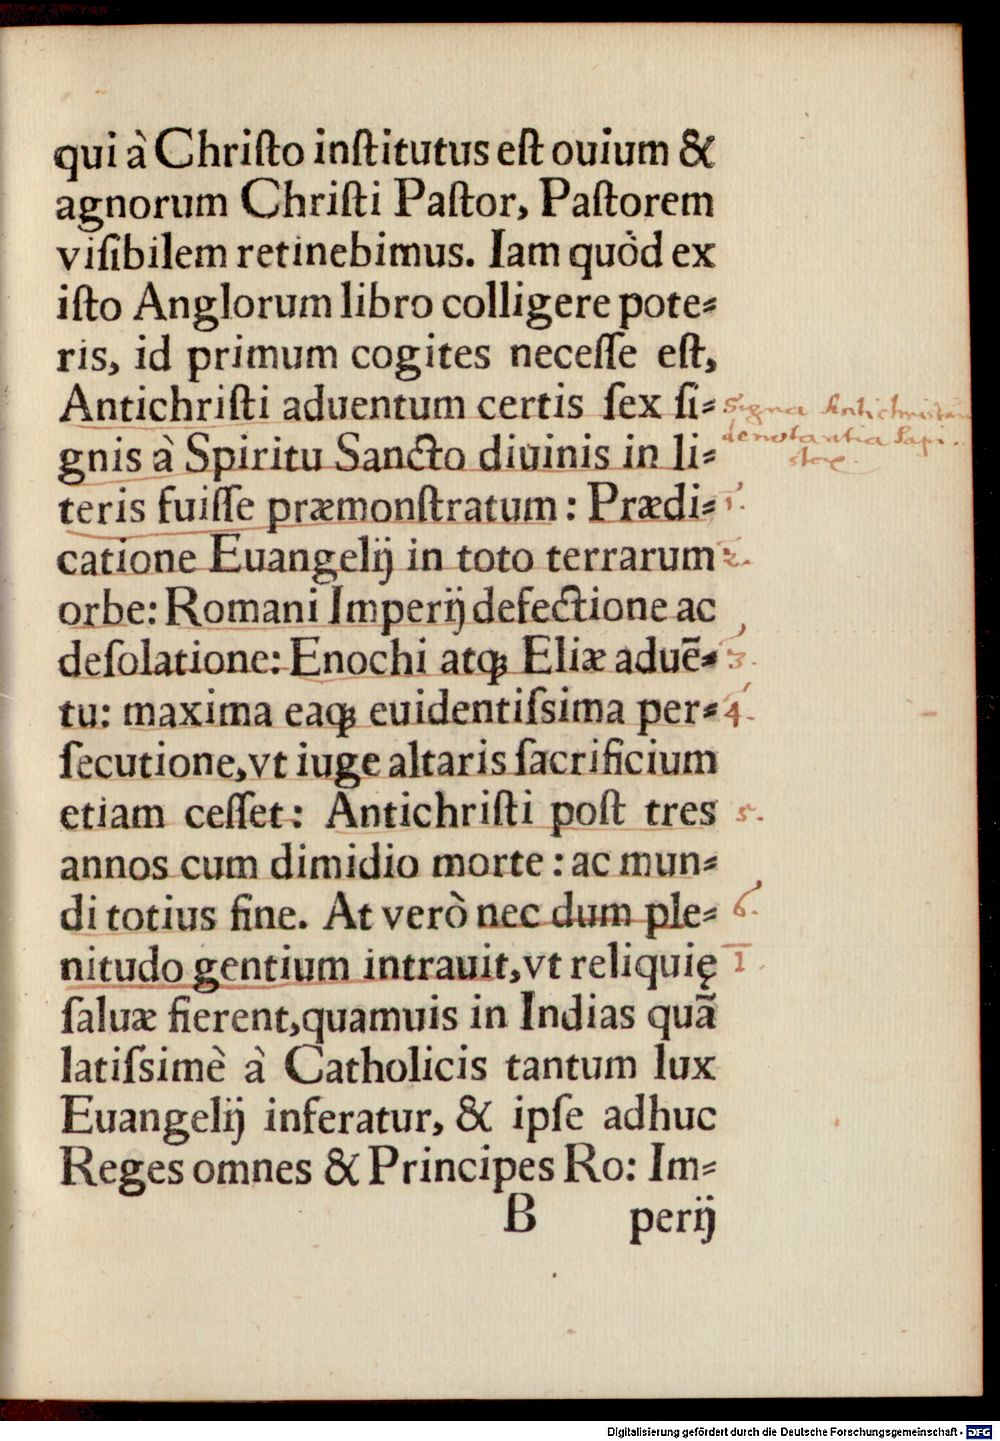 qui à Chriſto inſtitutus eſt ouium &
agnorum Chriſti Paſtor, Paſtorem
viſibilem retinebimus. Iam quòd ex
iſto Anglorum libro colligere pote-
ris, id primum cogites neceſſe eſt,
Antichriſti aduentum certis ſex ſi- Signa Antichristum
gnis à Spiritu Sancto diuinis in li- denotantia
teris fuiſſe præmonſtratum: Prædi- 1.
catione Euangelij in toto terrarum 2.
orbe: Romani Imperij defectione ac
deſolatione: Enochi atqꝫ Eliæ aduē- 3.
tu: maxima eaqꝫ euidentiſsima per- 4.
ſecutione, vt iuge altaris ſacrificium
etiam ceſſet: Antichriſti poſt tres 5.
annos cum dimidio morte: ac mun-
di totius fine. At verò nec dum ple- 6.
nitudo gentium intrauit, vt reliquię 1.
ſaluæ fierent, quamuis in Indias quā
latiſsimè à Catholicis tantum lux
Euangelij inferatur, & ipſe adhuc
Reges omnes & Principes Ro: Im-
B perij
Digitalisierung gefördert durch die Deutsche Forschungsgemeinschaft - DFG